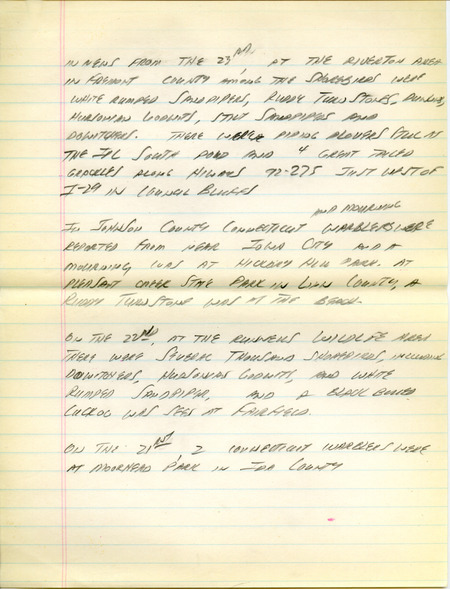 IN NEWS FROM THE 23RD, AT THE RIVERTON AREA
IN FREMONT COUNTY AMONG THE SHOREBIRDS WERE
WHITE RUMPED SANDPIPERS, RUDDY TURNSTONES, DUNLIN,
HUDSONIAN GODWITS, STILT SANDPIPERS AND
DOWITCHERS. THERE WERE PIPING PLOVERS STILL AT
THE IPL SOUTH POND AND 4 GREAT TAILED
GRACKLES ALONG HIGHWAY 92-275 JUST WEST OF
I-29 IN COUNCIL BLUFFS
AND MOURNING
IN JOHNSON COUNTY CONNECTICUT WARBLERS WERE
REPORTED FROM NEAR IOWA CITY AND A
MOURNING WAS AT HICKORY HILL PARK. AT
PLEASANT CREEK STATE PARK IN LINN COUNTY, A
RUDDY TURNSTONE WAS AT THE BEACH.
ON THE 22ND, AT THE RUNNELLS WILDLIFE AREA
THERE WERE SEVERAL THOUSAND SHOREBIRDS, INCLUDING
DOWITCHERS, HUDSONIAN GODWITS, AND WHITE
RUMPED SANDPIPER, AND A BLACK BILLED
CUCKOO WAS SEEN AT FAIRFIELD.
ON THE 21ST, 2 CONNECTICUT WARBLERS WERE
AT MOORHEAD PARK IN IDA COUNTY